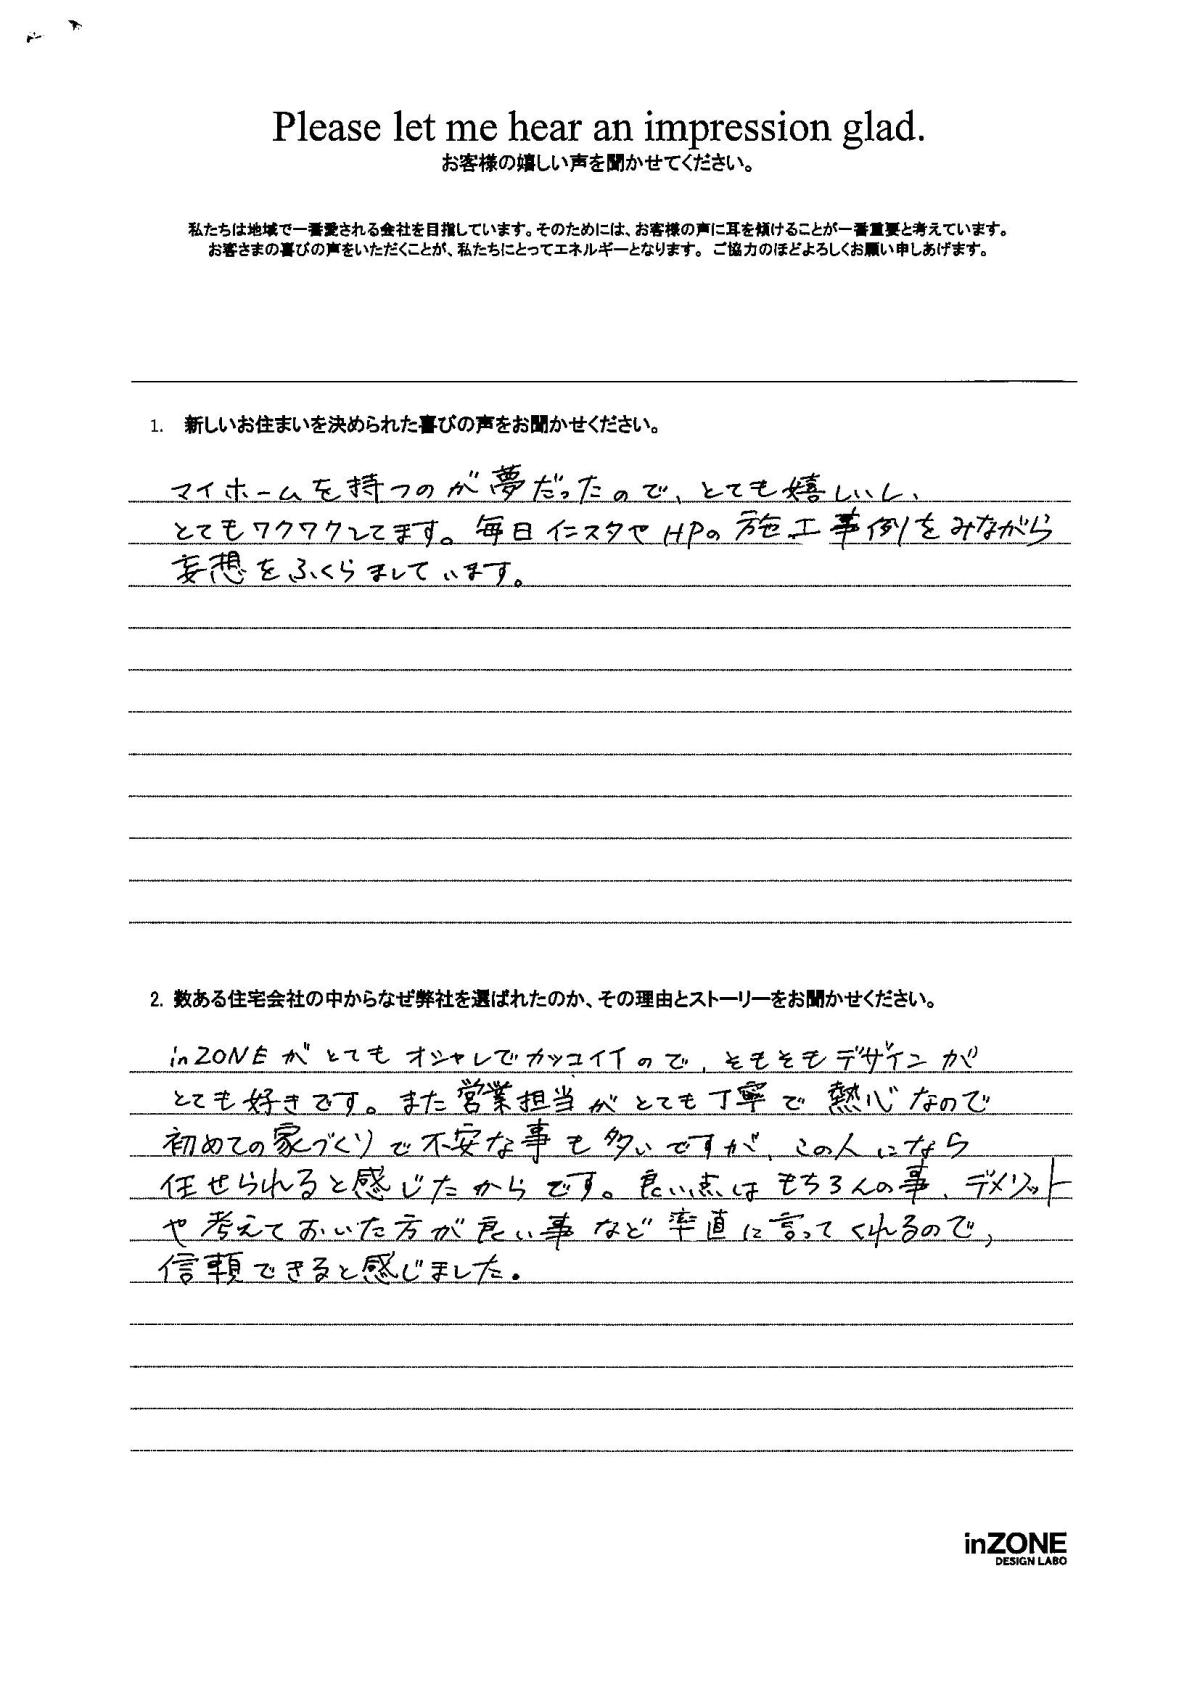 Please let me hear an impression glad.
お客様の嬉しい声を聞かせてください。
私たちは地域で一番愛される会社を目指しています。そのためには、お客様の声に耳を傾けることが一番重要と考えています。
お客さまの喜びの声をいただくことが、私たちにとってエネルギーとなります。ご協力のほどよろしくお願い申しあげます。
1. 新しいお住まいを決められた喜びの声をお聞かせください。
マイホームを持つのが夢だったので、とても嬉しいし、
とてもワクワクしてます。毎日インスタやHPの施工事例をみながら
妄想をふくらましています。
2. 数ある住宅会社の中からなぜ弊社を選ばれたのか、その理由とストーリーをお聞かせください。
inZONEがとてもオシャレでカッコイイので、そもそもデザインが
とても好きです。また営業担当がとても丁寧で熱心なので
初めての家づくりで不安な事も多いですが、この人になら
任せられると感じたからです。良い点はもちろんの事、デメリット
や考えておいた方が良い事など率直に言ってくれるので、
信頼できると感じました。
inZONE
DESIGN LABO